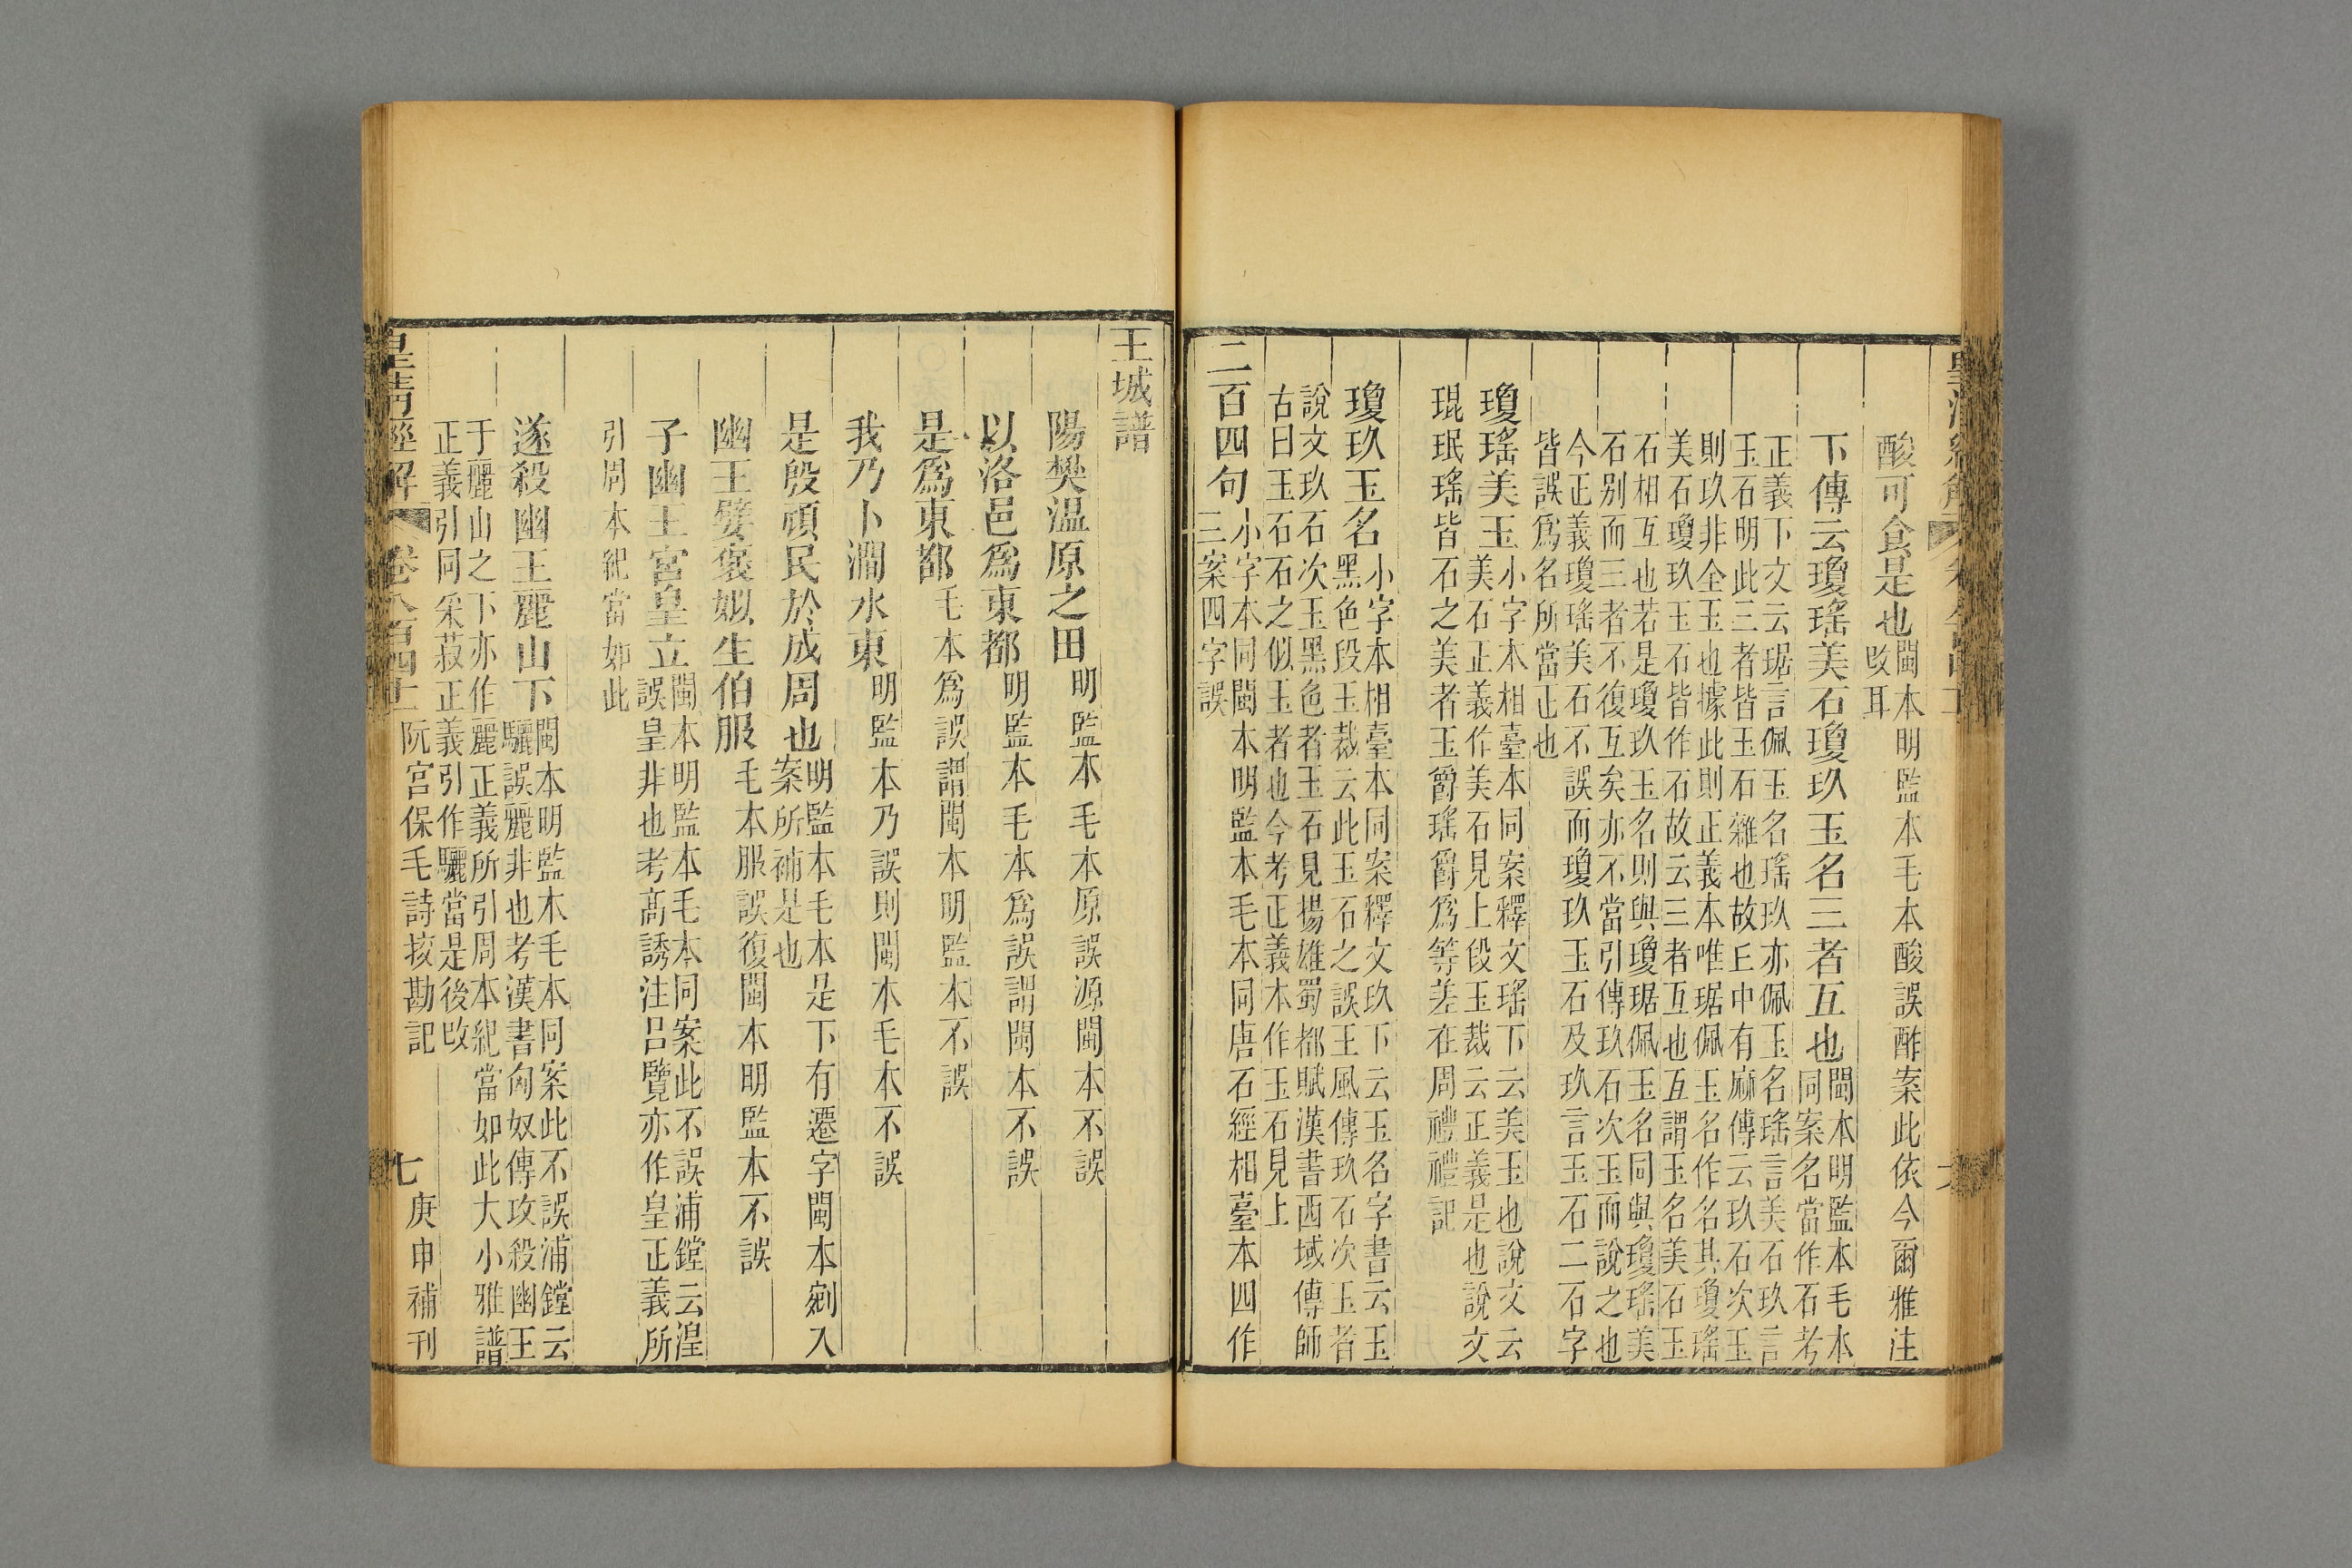 酸可食是也閩本明監本毛本酸誤酢案此依今爾雅注
改耳
下傳云瓊瑤美石瓊玖玉名三者互也閩本明監本毛本
同案名當作石考
正義下文云琚言佩玉名瑤玖亦佩玉名瑤言美石玖言
玉石明此三者皆玉石雜也故丘中有麻傳云玖石次玉
則玖非全玉也據此則正義本唯琚佩玉名作名其瓊瑤
美石瓊玖玉石皆作石故云三者互也互謂玉名美石玉
石相互也若是瓊玖玉名則與瓊琚佩玉名同與瓊瑤美
石别而三者不復互矣亦不當引傳玖石次玉而說之也
今正義瓊瑤美石不誤而瓊玖玉石及玖言玉石二石字
皆誤爲名所當正也
瓊瑤美玉小字本相臺本同案釋文瑤下云美玉也說文云
美石正義作美石見上段玉裁云正義是也說文
琨珉瑤皆石之美者玉爵瑤爵爲等差在周禮禮記
瓊玖玉名小字本相臺本同案釋文玖下云玉名字書云玉
黑色段玉裁云此玉石之誤王風傳玖石次玉者
說文玖石次玉黑色者玉石見揚雄蜀都賦漢書西域傳師
古曰玉石石之似玉者也今考正義本作玉石見上
二百四句小字本同閩本明監本毛本同唐石經相臺本四作
三案四字誤
王城譜
陽樊温原之田明監本毛本原誤源閩本不誤
以洛邑爲東都明監本毛本爲誤謂閩本不誤
是爲東都毛本爲誤謂閩本明監本不誤
我乃卜澗水東明監本乃誤則閩本毛本不誤
是殷頑民於成周也明監本毛本是下有遷字閩本剜入
案所補是也
幽王嬖褒姒生伯服毛本服誤復閩本明監本不誤
子幽王宮皇立閩本明監本毛本同案此不誤浦鏜云湟
誤皇非也考高誘注呂覽亦作皇正義所
引周本紀當如此
遂殺幽王麗山下閩本明監本毛本同案此不誤浦鏜云
驪誤麗非也考漢書匈奴傳攻殺幽王
于麗山之下亦作麗正義所引周本紀當如此大小雅譜
正義引同采菽正義引作驪當是後改
皇清經解 卷八百四十一 阮宮保毛詩挍勘記 七 庚申補刊